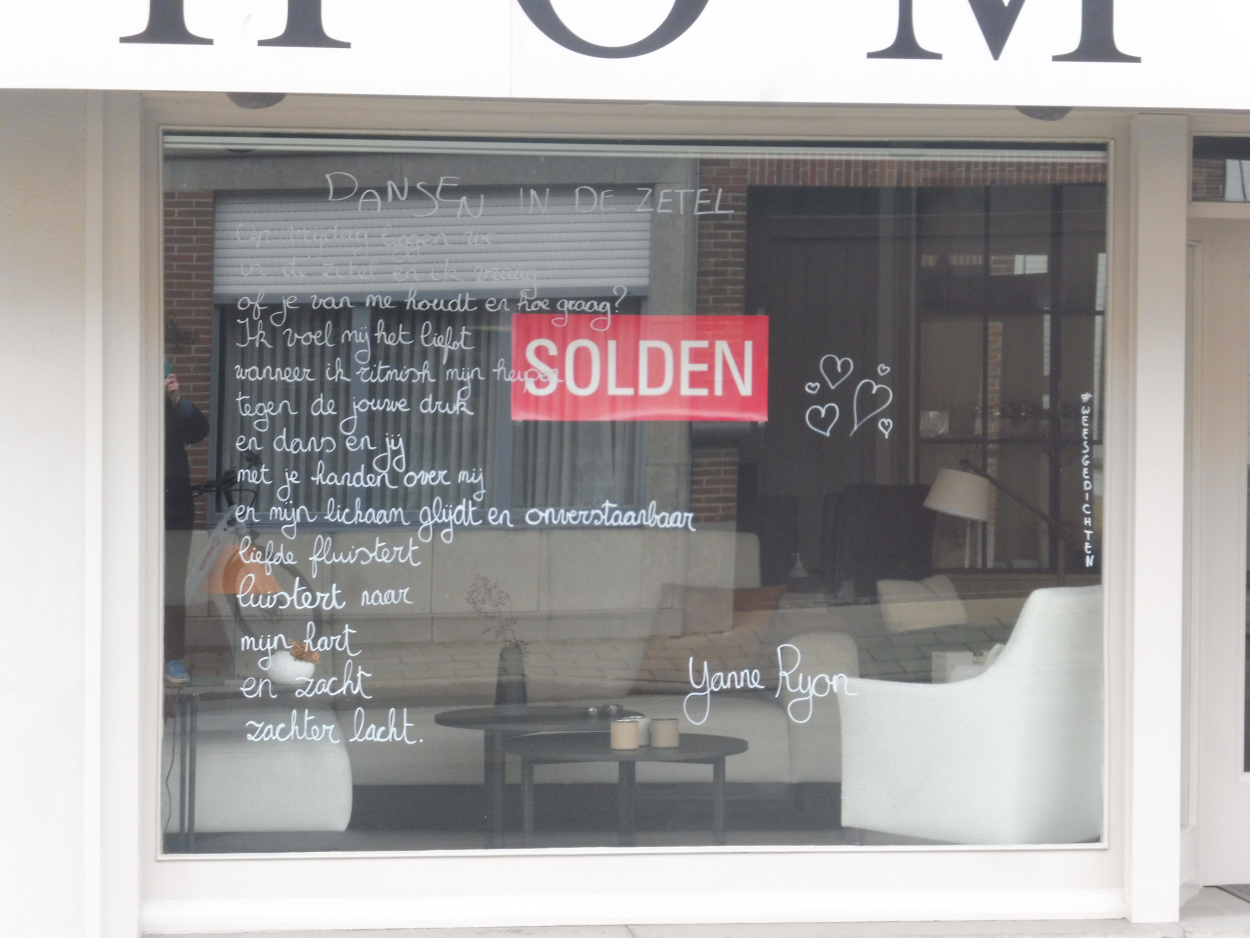 HOM
DANSEN IN DE ZETEL
Op vrijdag liggen we
in de zetel en ik vraag
of je van me houdt en hoe graag?
Ik voel mij het liefst
wanneer ik ritmisch mijn heupen
tegen de jouwe druk
en dans en jij
met je handen over mij
en mijn lichaam glijdt en onverstaanbaar
liefde fluistert
luistert naar
mijn hart
en zacht
zachter lacht.
SOLDEN
Yanne Ryon
#WEESGEDICHTEN